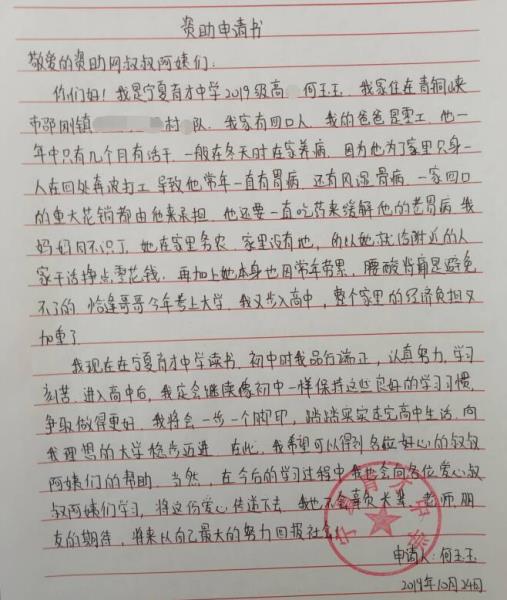 资助申请书
敬爱的资助网叔叔阿姨们:
你们好!我是宁夏育才中学2019级高 何玉玉.我家住在青铜峡
市邵刚镇 村 队.我家有四口人.我的爸爸是零工.他一
年中只有几个月有活干.一般在冬天时在家养病.因为他为了家里只身一
人在四处奔波打工.导致他常年一直有胃病.还有风湿骨病.一家四口
的重大花销都由他来承担.他还要一直吃药来缓解他的老胃病.我
妈妈目不识丁.她在家里务农.家里没有地.所以她就给附近的人
家干活挣点零花钱.再加上她本身也因常年劳累,腰酸背痛是避免
不了的.恰逢哥哥今年考上大学.我又步入高中,整个家里的经济负担又
加重了.
我现在在宁夏育才中学读书.初中时我品行端正,认真努力.学习
刻苦.进入高中后.我定会继续像初中一样保持这些良好的学习习惯.
争取做得更好.我将会一步一个脚印,踏踏实实走完高中生活.向
我理想的大学稳步迈进.在此.我希望可以得到各位好心的叔叔
阿姨们的帮助.当然,在今后的学习过程中我也会向各位爱心叔
叔阿姨们学习,将这份爱心传递下去.我也不会辜负长辈.老师.朋
友的期待,将来以自己最大的努力回报社会!
申请人:何玉玉
2019年10月24日